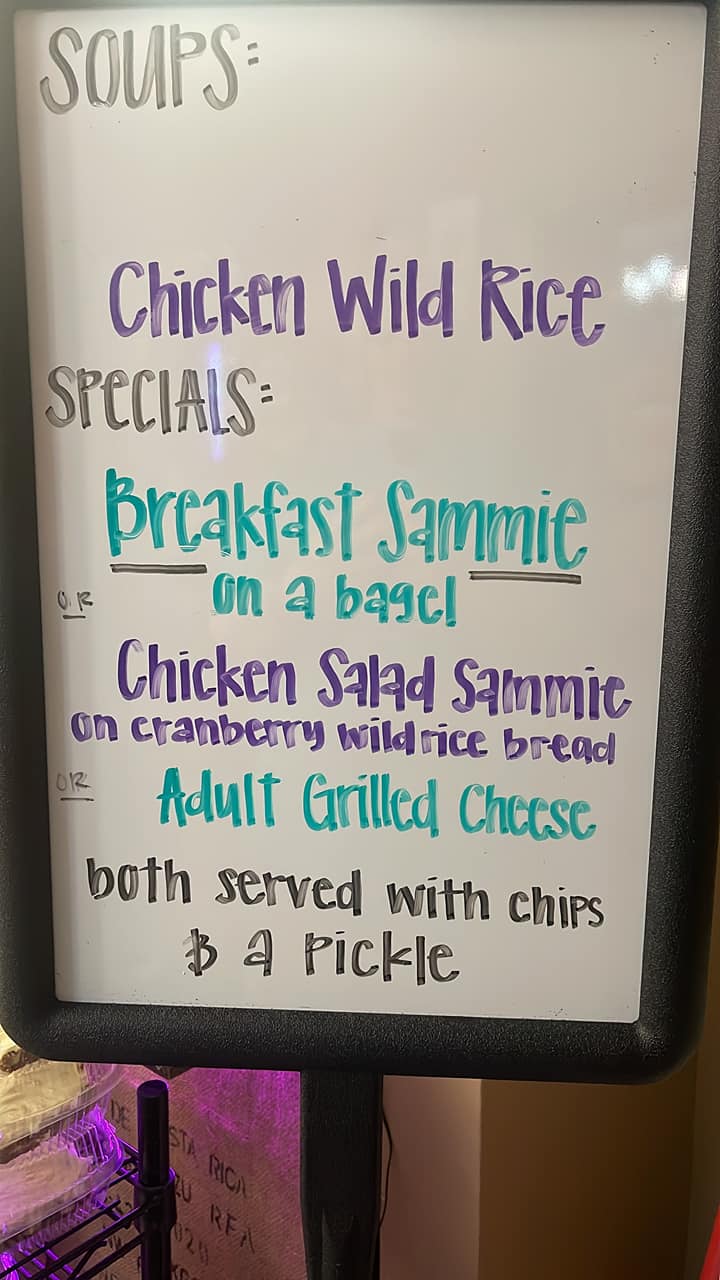 SOUPS:
Chicken Wild Rice
SPECIALS:
Breakfast Sammie
on a bagel
OR
Chicken Salad Sammie
on cranberry wild rice bread
OR
Adult Grilled Cheese
both served with chips
& a pickle
DE
STA RICA